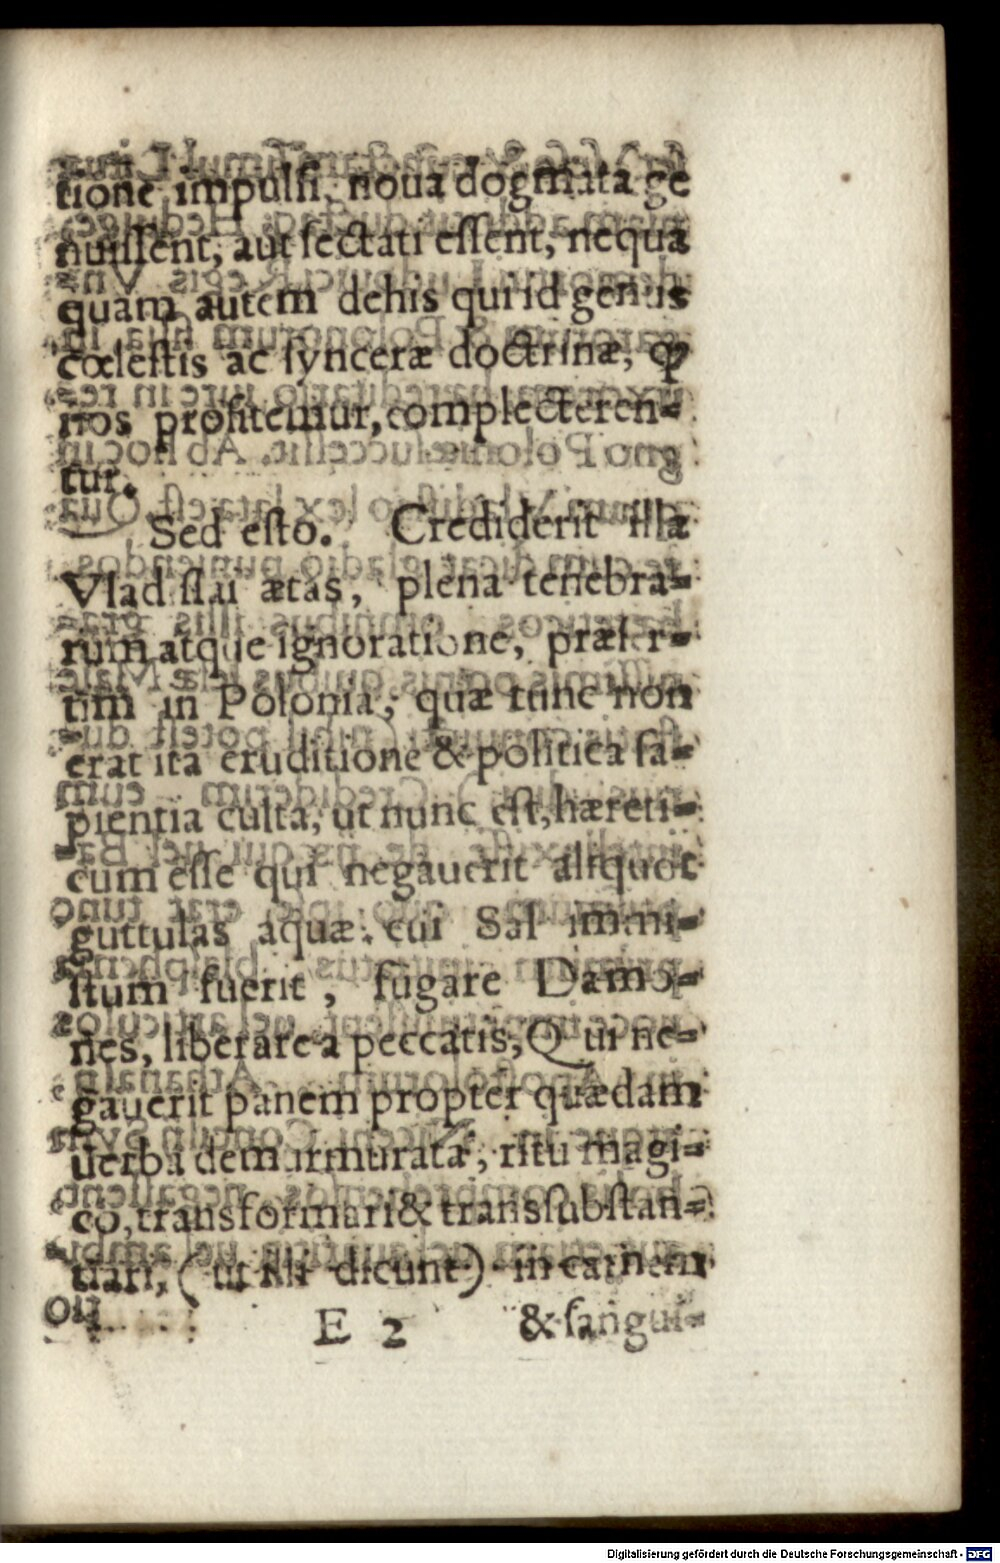 tione impulsi, noua dogmata ge
nuissent, aut sectati essent, nequa
quam autem dehis qui id genus
cœlestis ac synceræ doctrinæ, ꝙ
nos profitemur, complecteren=
tur.
Sed esto. Crediderit illa
Vladislai ætas, plena tenebra=
rum atque ignoratione, præser=
tim in Polonia, quæ tunc non
erat ita eruditione & politica sa=
pientia culta, ut nunc est, hæreti=
cum esse qui negauerit aliquot
guttulas aquæ, cui Sal immi=
stum fuerit, fugare Dæmo=
nes, liberare a peccatis, Qui ne=
gauerit panem propter quædam
uerba demurmurata, ritu magi=
co, transformari & transsubstan=
tiari, ( ut illi dicunt ) in carnem
E 2 & sangui=
Digitalisierung gefördert durch die Deutsche Forschungsgemeinschaft - DFG